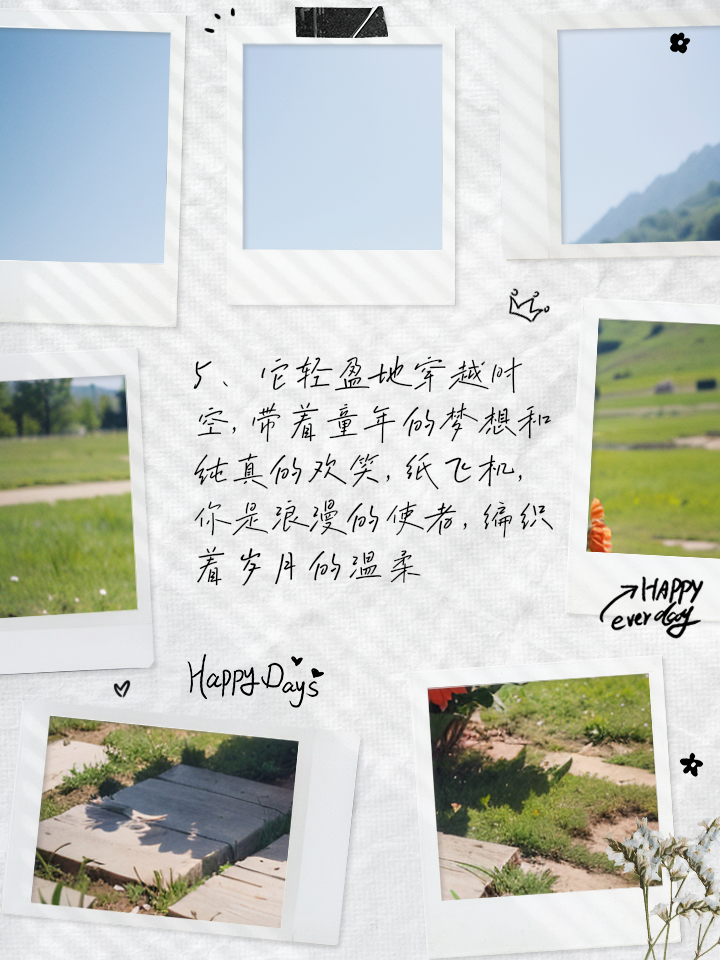 5、它轻盈地穿越时
空，带着童年的梦想和
纯真的欢笑，纸飞机，
你是浪漫的使者，编织
着岁月的温柔
HAPPY
everday
Happy Days